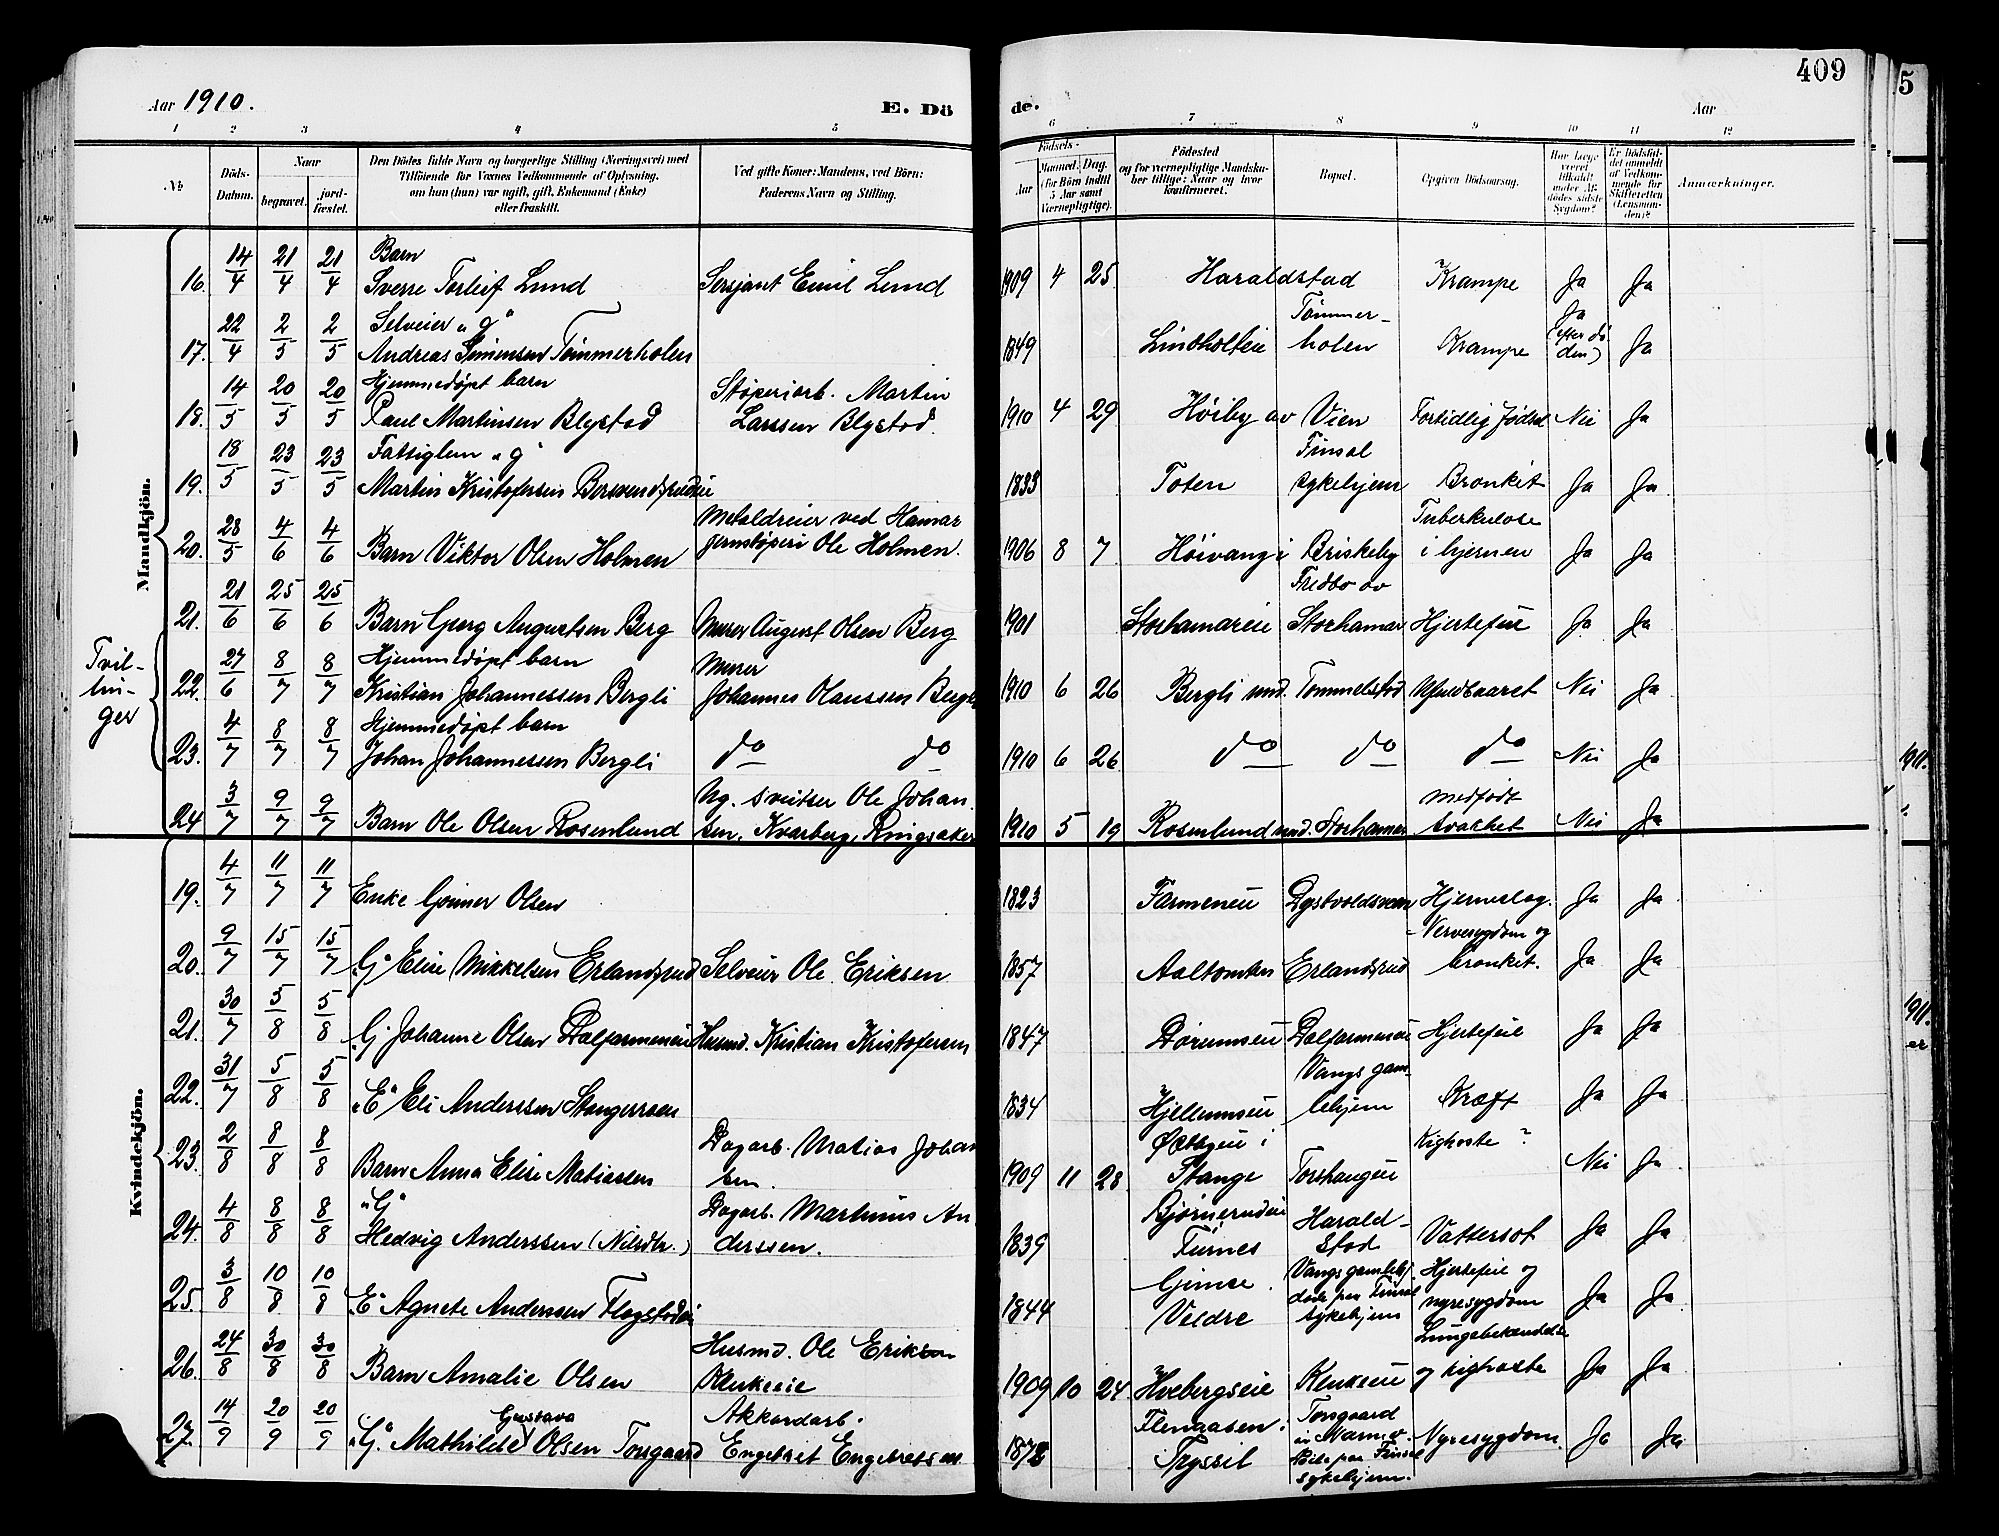 409
5
Aar 1910.
E. Dö
de.
Aar
1 2 3 4 5 6 7 8 9 10 11 12
No
Döds-Datum.
Naar
begravet.
jord-fæstet.
Den Dödes fulde Navn og borgerlige Stilling (Næringsvei) med
Tilföiende for Voxnes Vedkommende af Oplysning,
om han (hun) var ugift, gift, Enkemand (Enke)
eller fraskilt.
Ved gifte Koner: Mandens, ved Börn:
Faderens Navn og Stilling.
Födsels-
Aar
Maaned.
Dag.
(for Börn indtil
5 Aar samt
Værnepligtige).
Födested
og for værnepligtige Mandska-
ber tillige: Naar og hvor
konfirmeret.
Bopæl.
Opgiven Dödsaarsag.
Har Læge
været
tilkaldt
under Af-
dödes sidste
Sygdom?
Er Dödsfal-
det anmeldt
af Vedkom-
mende for
Skifteretten
(Lensman-
den)?
Anmærkninger.
Mandkjön.
16. 14/4 21/4 21/4 Barn
Sverre Torleif Lund Sersjant Emil Lund 1909 4 25 Haraldstad Krampe Ja Ja
17. 22/4 2/5 2/5 Selveier "g"
Andreas Simensen Tømmerholen 1849 Lindholteie Tømmer-
holen Krampe Ja
(efter dø
den) Ja
18. 14/5 20/5 20/5 Hjemmedøpt barn
Paul Martinsen Blystad Støperiarb. Martin
Larssen Blystad. 1910 4 29 Høiby av Vien Fortidlig fødsel Nei Ja
19. 18/5 23/5 23/5 Fattiglem "g"
Martin Kristofersen 1833 Toten Finsal
sykehjem Bronkit Ja Ja
20. 28/5 4/6 4/6 Barn Viktor Olsen Holmen Metaldreier ved Hamar
jernstøperi Ole Holmen. 1906 8 7 Høivang i Briskeby Tuberkulose
i hjernen Ja Ja
21. 21/6 25/6 25/6 Barn Georg Augustsen Berg Murer August Olsen Berg 1901 Storhamareie Fredbo av
Storhamar Hjertefeil Ja Ja
Tvil-
lin-
ger
22. 27/6 8/7 8/7 Hjemmedøpt barn
Kristian Johannessen Bergli Murer
Johannes Olaussen Bergli 1910 6 26 Bergli und. Tommelstad Ufuldbaaret Nei Ja
23. 4/7 8/7 8/7 Hjemmedøpt barn
Johan Johannessen Bergli do do 1910 6 26 do do do Nei Ja
24 3/7 9/7 9/7 Barn Ole Olsen Rosenlund Ug. sveitser Ole Johan
sen, Kvarberg, Ringsaker 1910 5 19 Rosenlund und. Storhamar medfødt
svakhet Nei Ja
Kvindekjön.
19. 4/7 11/7 11/7 Enke Gunner Olsen 1823 Farmeneie Hjerneslag. Ja Ja
20. 9/7 15/7 15/7 "G" Elise Mikkelsen Erlandsrud Selveier Ole Eriksen 1857 Aaltomten Erlandsrud Nervesygdom og
bronkit. Ja Ja
21. 30/7 5/8 5/8 "G" Johanne Olsen Dalfarmeneie Husmd. Kristian Kristofersen 1847 Dørumseie Dalfarmeneie Hjertefeil Ja Ja
22. 31/7 5/8 5/8 "E" Eli Anderssen 1834 Hjellumseie Vangs gam-
lehjem Kræft Ja Ja
23. 2/8 8/8 8/8 Barn Anna Elise Matiassen Dagarb. Matias Johan
sen. 1909 11 28 i
Stange Torshaugeie Kighoste ? Nei Ja
24. 4/8 8/8 8/8 "G"
Hedvig Anderssen (Nilsdtr.) Dagarb. Martinus An
derssen. 1839 Bjørnerudeie
Furnes Harald-
stad Vattersot Ja Ja
25. 3/8 10/8 10/8 "E" Agnete Anderssen Flagstadeie 1844 Veldre Vangs gamlehj.
døde paa Finsal
sykehjem Hjertefeil og
nyresygdom Ja Ja
26. 24/8 30/8 30/8 Barn Amalie Olsen Husmd. Ole Eriksen 1909 10 24 Hvebergseie Lungebetændelse
og kighoste Ja Ja
27. 14/9 20/9 20/9 "G" Mathilde Gustava Olsen Torsgaard Akkordarb.
Engebret Engebretsen 1872 Flenaasen i
Trysil Torsgaard
i
Døde paa Finsal
sykehjem. Nyresygdom. Ja Ja
1911.
1911.
er